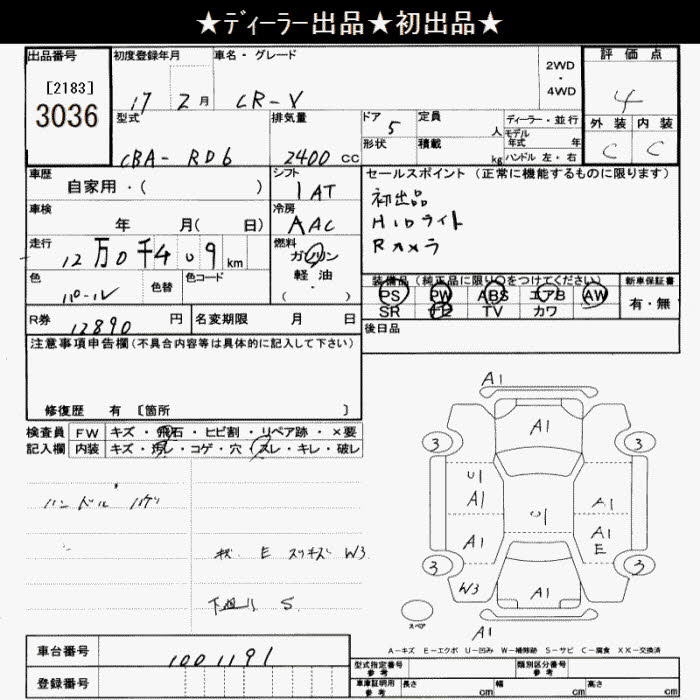 ★ディーラー出品★初出品★
出品番号
[2183]
3036
初度登録年月
17 2 月
車名・グレード
CR-V
2WD
・
4WD
評価点
4
型式
CBA-RD6
排気量
2400 cc
ドア 5
形状
定員 人
積載 kg
ディーラー・並行
モデル年式 年
ハンドル 左・右
外装
C
内装
C
車歴
自家用・( )
シフト
1AT
セールスポイント (正常に機能するものに限ります)
初出品
HIDライト
Rカメラ
車検
年 月( 日)
冷房
AAC
走行
12万0千409km
燃料
ガソリン
軽油
・
( )
色
パール
色替
色コード
装備品(純正品に限り○をつけてください)
PS PW ABS エアB AW
SR ナビ TV カワ
新車保証書
有・無
R券
12890 円
名変期限 月 日
後日品
注意事項申告欄(不具合内容等は具体的に記入して下さい)
修復歴 有 [箇所 ]
検査員
記入欄
FW キズ・飛石・ヒビ割・リペア跡・×要
内装 キズ・汚レ・コゲ・穴・スレ・キレ・破レ
ハンドル ハゲ
キズ E スリキズ W3
下廻り S
A1
A1
3
3
U1
A1
A1
U1
A1
A1
E
3
3
W3
A1
スペア
A1
A-キズ E-エクボ U-凹み W-補修跡 S-サビ C-腐食 XX-交換済
車台番号
1001191
登録番号
型式指定番号
参考
類別区分番号
参考
車庫証明用
参考
長さ cm
幅 cm
高さ cm